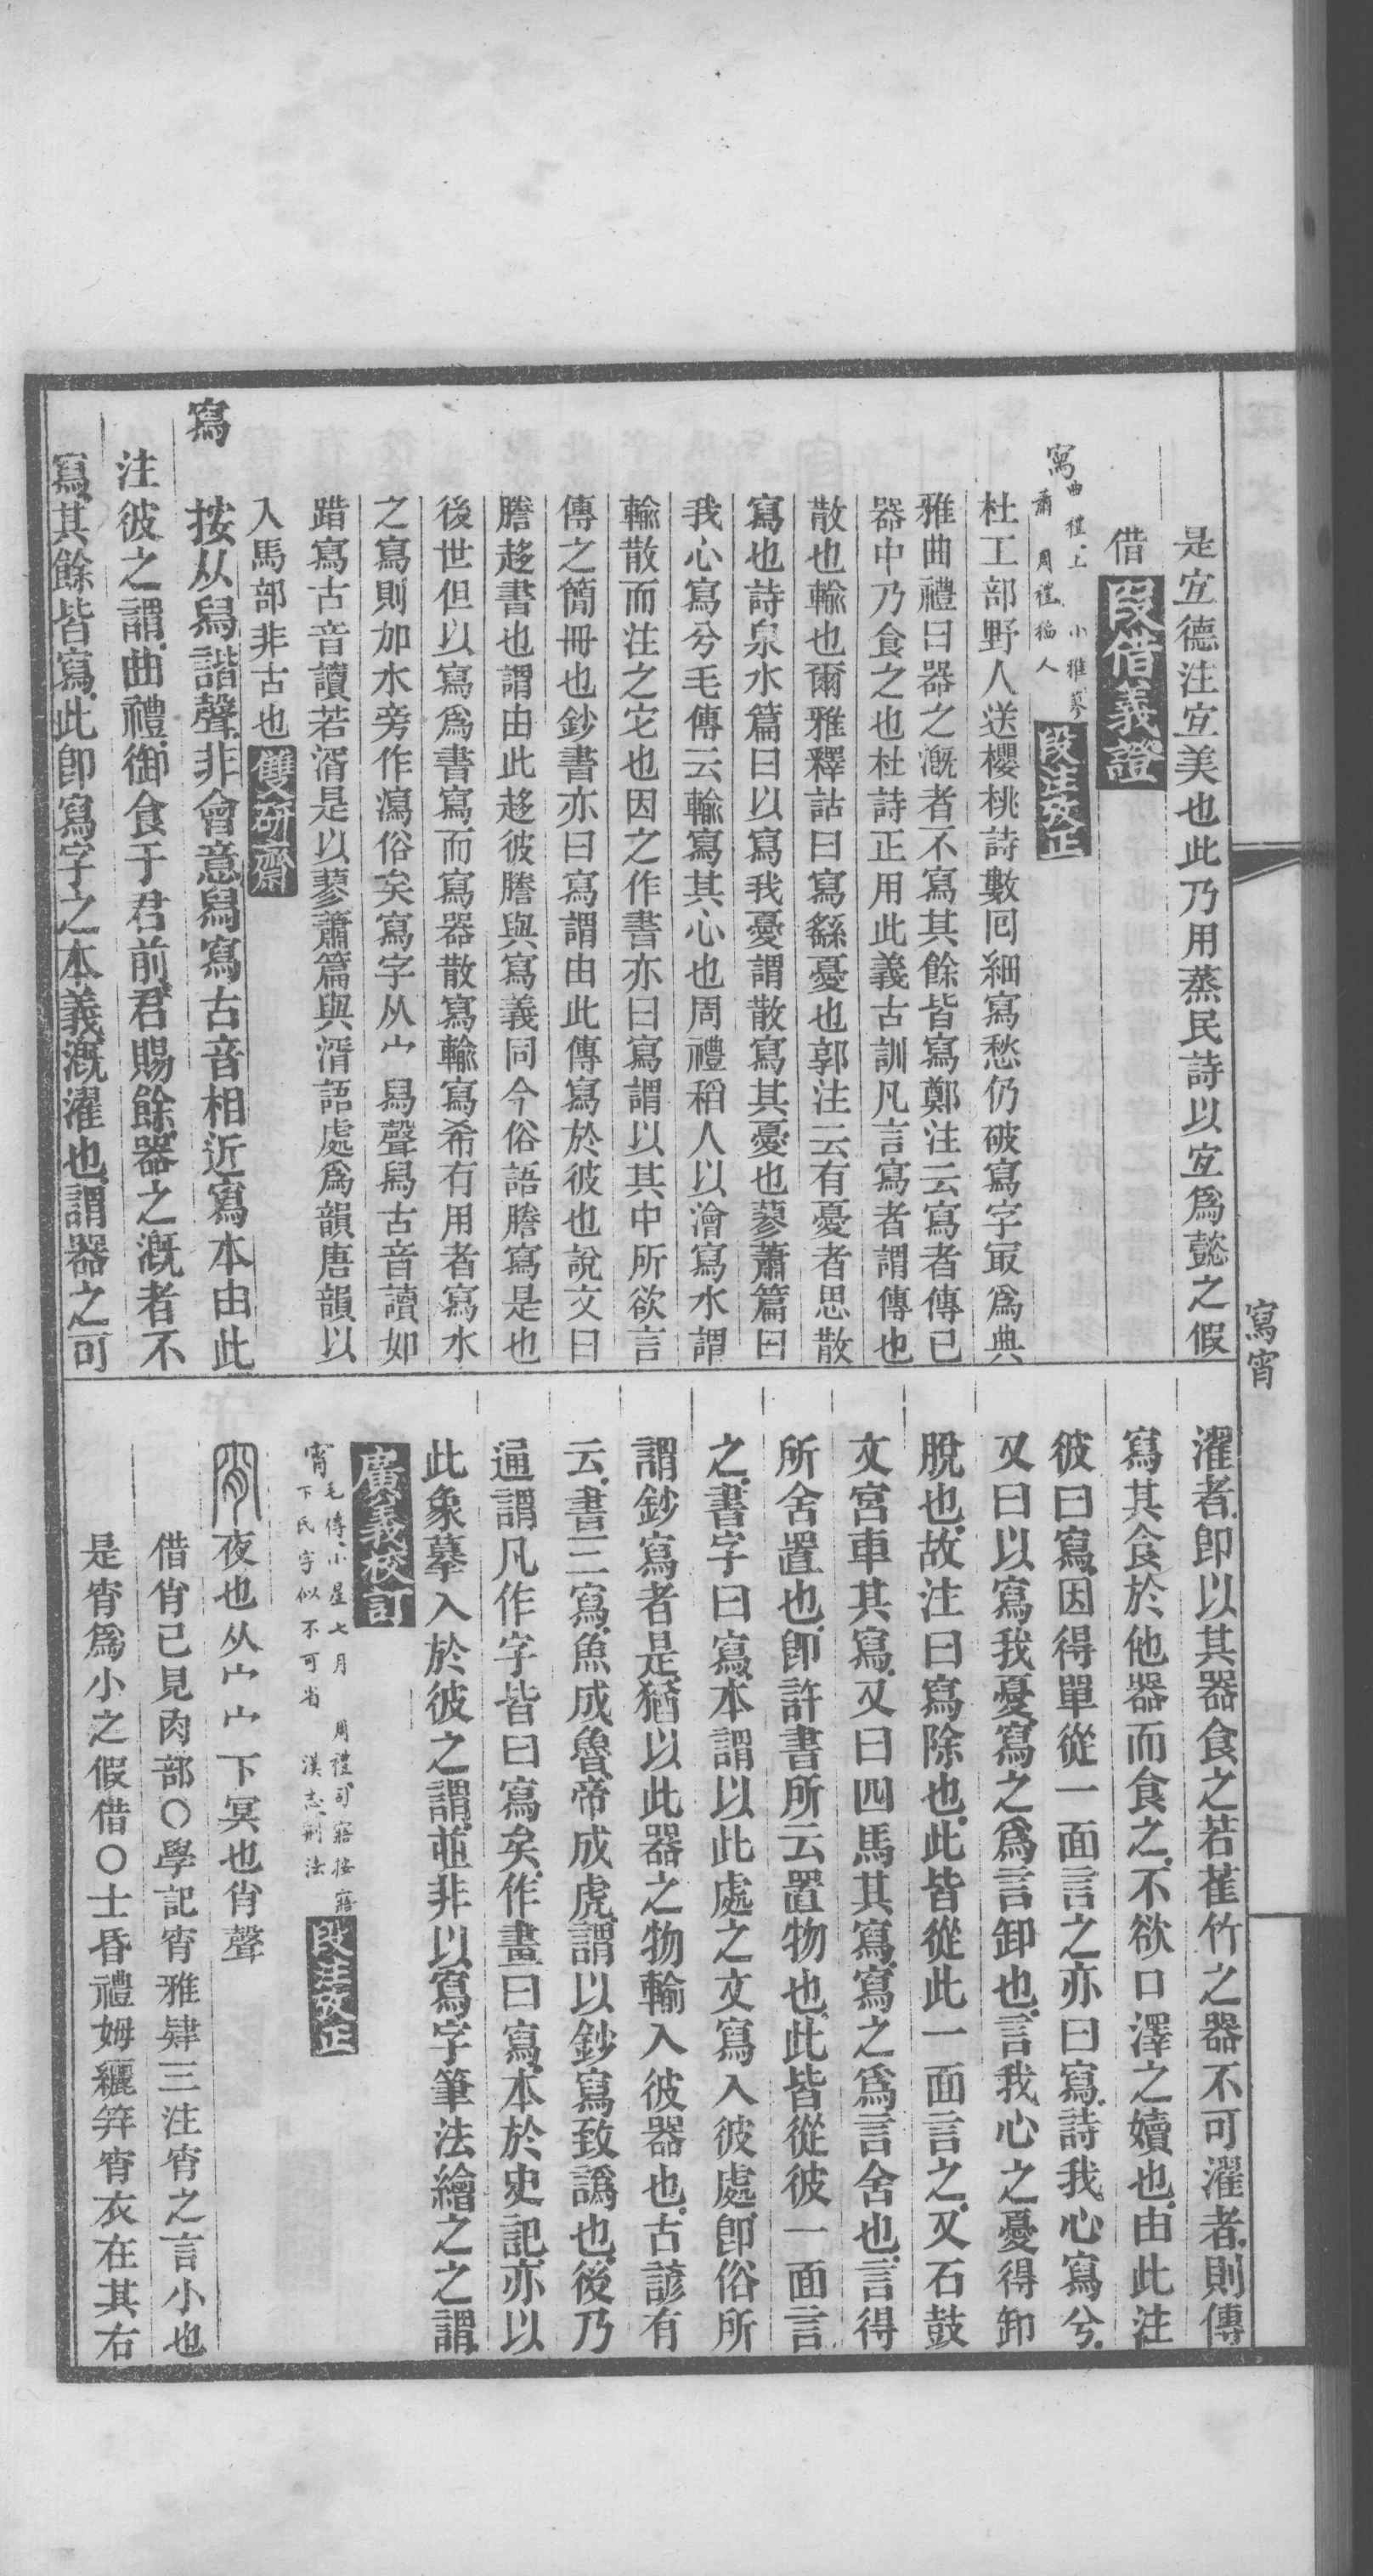 是宐德注宐美也此乃用蒸民詩以宐爲懿之假
借 叚借義證
寫 曲禮上 小雅蓼蕭 周禮稻人 段注攷正
杜工部野人送櫻桃詩數囘細寫愁仍破寫字冣爲典
雅曲禮曰器之漑者不寫其餘皆寫鄭注云寫者傳已
器中乃食之也杜詩正用此義古訓凡言寫者謂傳也
散也輸也爾雅釋詁曰寫繇憂也郭注云有憂者思散
寫也詩泉水篇曰以寫我憂謂散寫其憂也蓼蕭篇曰
我心寫兮毛傳云輸寫其心也周禮稻人以澮寫水謂
輸散而注之它也因之作書亦曰寫謂以其中所欲言
傳之簡冊也鈔書亦曰寫謂由此傳寫於彼也說文曰
謄迻書也謂由此迻彼謄與寫義同今俗語謄寫是也
後世但以寫爲書寫而寫器散寫輸寫希有用者寫水
之寫則加水旁作瀉俗矣寫字从宀舄聲舄古音讀如
踖寫古音讀若湑是以蓼蕭篇與湑語處爲韻唐韻以
入馬部非古也 雙硏齋
寫 按从舄諧聲非會意舄寫古音相近寫本由此
注彼之謂曲禮御食于君前君賜餘器之漑者不
寫其餘皆寫此卽寫字之本義漑濯也謂器之可
濯者卽以其器食之若萑竹之器不可濯者則傳
寫其食於他器而食之不欲口澤之凟也由此注
彼曰寫因得單從一面言之亦曰寫詩我心寫兮
又曰以寫我憂寫之爲言卸也言我心之憂得卸
脫也故注曰寫除也此皆從此一面言之又石鼓
文宮車其寫又曰四馬其寫寫之爲言舍也言得
所舍置也卽許書所云置物也此皆從彼一面言
之書字曰寫本謂以此處之文寫入彼處卽俗所
謂鈔寫者是猶以此器之物輸入彼器也古諺有
云書三寫魚成魯帝成虎謂以鈔寫致譌也後乃
通謂凡作字皆曰寫矣作畫曰寫本於史記亦以
此象摹入於彼之謂並非以寫字筆法繪之之謂
廣義校訂
宵 毛傳小星七月 周禮司寤按寤下氏字似不可省 漢志刑法 段注攷正
宵夜也从宀宀下冥也肖聲
借肖已見肉部○學記宵雅肄三注宵之言小也
是宵爲小之假借○士昏禮姆纚笄宵衣在其右
寫宵